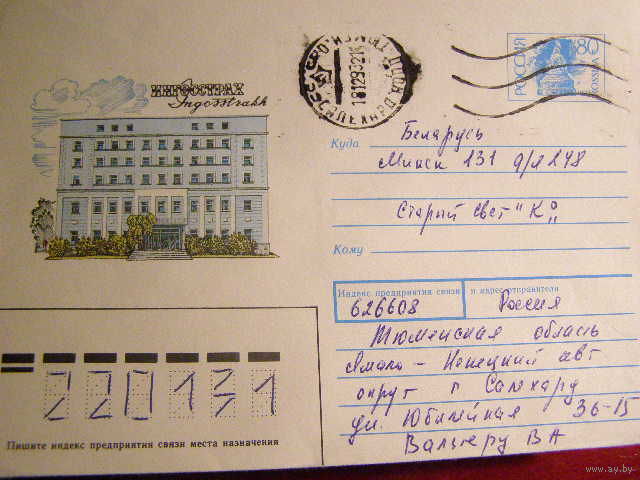 ИНГОССТРАХ
Ingosstrakh
РОССИЯ
80
ROSSIJA
181293 21
Куда Беларусь
Минск 131 а/я 248
Старый свет "К"
Кому
Индекс предприятия связи и адрес отправителя
626608 Россия
Тюменская область
Ямало-Ненецкий авт
округ г Салехард
ул. Юбилейная 36-15
Вальтеру ВА
220131
Пишите индекс предприятия связи места назначения
www.ay.by